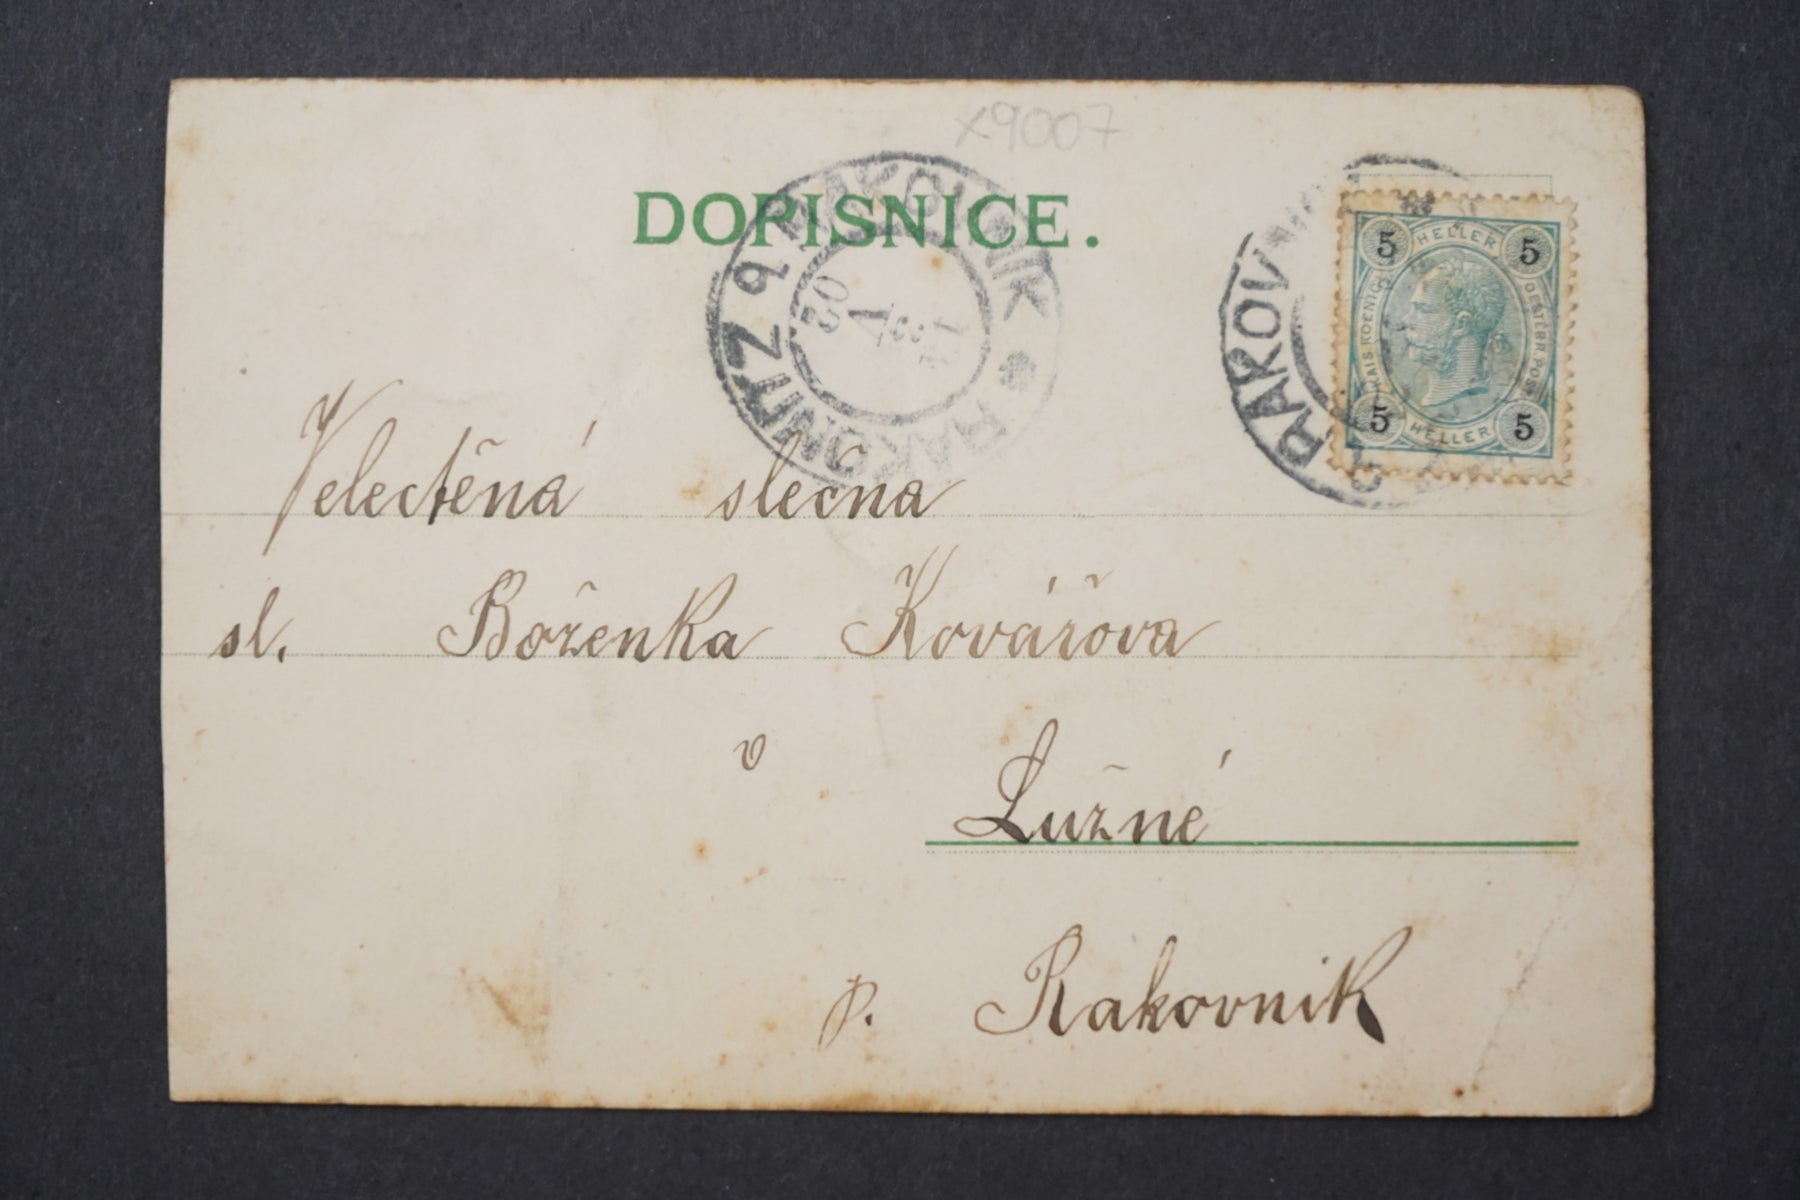 x9007
DOPISNICE.
RAKOVNÍK * RAKONITZ 9 b
RAKOVNÍ
5 HELLER 5
KAIS. KOENIG. OESTERR. POST
5 HELLER 5
Velectěná slečna
sl. Boženka Kovářova
v Lužné
p. Rakovnik